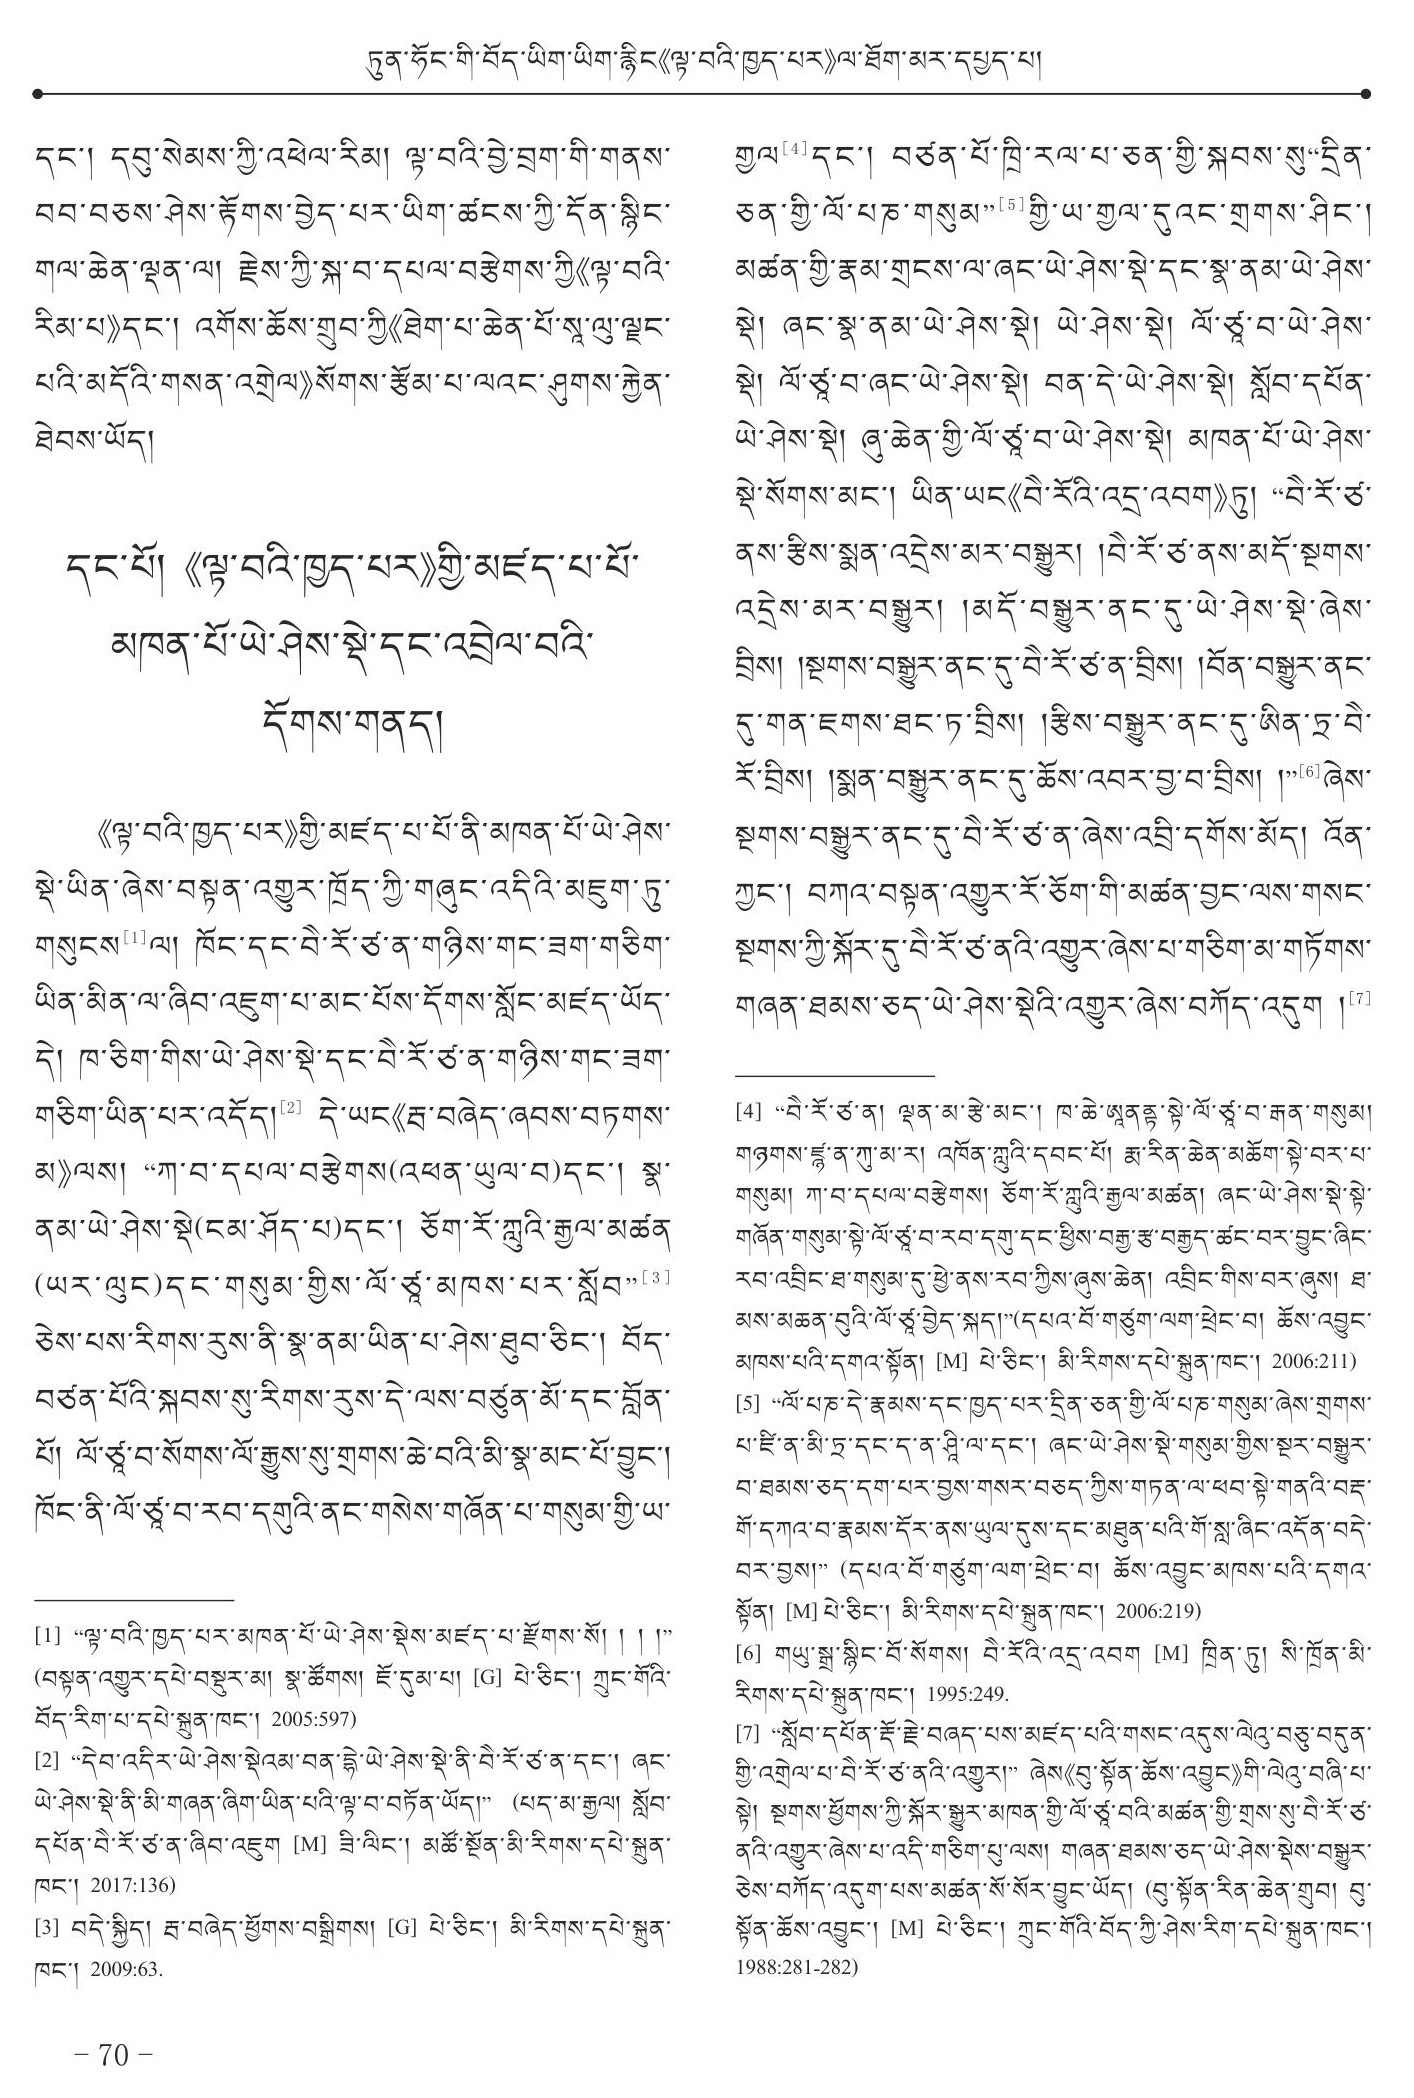 ཏུན་ཧོང་གི་བོད་ཡིག་ཡིག་རྙིང《ལྟ་བའི་ཁྱད་པར》ལ་ཐོག་མར་དཔྱད་པ།
དང་། དབུ་སེམས་ཀྱི་འཕེལ་རིམ། ལྟ་བའི་བྱེ་བྲག་གི་གནས་
བབ་བཅས་ཤེས་རྟོགས་བྱེད་པར་ཡིག་ཚངས་ཀྱི་དོན་སྙིང་
གལ་ཆེན་ལྡན་ལ། རྗེས་ཀྱི་སྐ་བ་དཔལ་བརྩེགས་ཀྱི《ལྟ་བའི་
རིམ་པ》དང་། འགོས་ཆོས་གྲུབ་ཀྱི《ཐེག་པ་ཆེན་པོ་སཱ་ལུ་ལྗང་
པའི་མདོའི་གསན་འགྲེལ》སོགས་རྩོམ་པ་ལའང་ཤུགས་རྐྱེན་
ཐེབས་ཡོད།
དང་པོ། 《ལྟ་བའི་ཁྱད་པར》གྱི་མཛད་པ་པོ་
མཁན་པོ་ཡེ་ཤེས་སྡེ་དང་འབྲེལ་བའི་
དོགས་གནད།
《ལྟ་བའི་ཁྱད་པར》གྱི་མཛད་པ་པོ་ནི་མཁན་པོ་ཡེ་ཤེས་
སྡེ་ཡིན་ཞེས་བསྟན་འགྱུར་ཁྲོད་ཀྱི་གཞུང་འདིའི་མཇུག་ཏུ་
གསུངས[1]ལ། ཁོང་དང་བཻ་རོ་ཙ་ན་གཉིས་གང་ཟག་གཅིག་
ཡིན་མིན་ལ་ཞིབ་འཇུག་པ་མང་པོས་དོགས་སློང་མཛད་ཡོད་
དེ། ཁ་ཅིག་གིས་ཡེ་ཤེས་སྡེ་དང་བཻ་རོ་ཙ་ན་གཉིས་གང་ཟག་
གཅིག་ཡིན་པར་འདོད།[2] དེ་ཡང《རྦ་བཞེད་ཞབས་བཏགས་
མ》ལས། “ཀ་བ་དཔལ་བརྩེགས(འཕན་ཡུལ་བ)དང་། སྣ་
ནམ་ཡེ་ཤེས་སྡེ(ངམ་ཤོད་པ)དང་། ཅོག་རོ་ཀླུའི་རྒྱལ་མཚན
(ཡར་ལུང)དང་གསུམ་གྱིས་ལོ་ཙཱ་མཁས་པར་སློབ”[3]
ཅེས་པས་རིགས་རུས་ནི་སྣ་ནམ་ཡིན་པ་ཤེས་ཐུབ་ཅིང་། བོད་
བཙན་པོའི་སྐབས་སུ་རིགས་རུས་དེ་ལས་བཙུན་མོ་དང་བློན་
པོ། ལོ་ཙཱ་བ་སོགས་ལོ་རྒྱུས་སུ་གྲགས་ཆེ་བའི་མི་སྣ་མང་པོ་བྱུང་།
ཁོང་ནི་ལོ་ཙཱ་བ་རབ་དགུའི་ནང་གསེས་གཞོན་པ་གསུམ་གྱི་ཡ་
[1] “ལྟ་བའི་ཁྱད་པར་མཁན་པོ་ཡེ་ཤེས་སྡེས་མཛད་པ་རྫོགས་སོ། ། ། །”
(བསྟན་འགྱུར་དཔེ་བསྡུར་མ། སྣ་ཚོགས། ཇོ་དུམ་པ། [G] པེ་ཅིང་། ཀྲུང་གོའི་
བོད་རིག་པ་དཔེ་སྐྲུན་ཁང་། 2005:597)
[2] “དེབ་འདིར་ཡེ་ཤེས་སྡེའམ་བན་དྷེ་ཡེ་ཤེས་སྡེ་ནི་བཻ་རོ་ཙ་ན་དང་། ཞང་
ཡེ་ཤེས་སྡེ་ནི་མི་གཞན་ཞིག་ཡིན་པའི་ལྟ་བ་བཏོན་ཡོད།” (པད་མ་རྒྱལ། སློབ་
དཔོན་བཻ་རོ་ཙ་ན་ཞིབ་འཇུག [M] ཟི་ལིང་། མཚོ་སྔོན་མི་རིགས་དཔེ་སྐྲུན་
ཁང་། 2017:136)
[3] བདེ་སྐྱིད། རྦ་བཞེད་ཕྱོགས་བསྒྲིགས། [G] པེ་ཅིང་། མི་རིགས་དཔེ་སྐྲུན་
ཁང་། 2009:63.
གྱལ[4]དང་། བཙན་པོ་ཁྲི་རལ་པ་ཅན་གྱི་སྐབས་སུ“དྲིན་
ཅན་གྱི་ལོ་པཎ་གསུམ”[5]གྱི་ཡ་གྱལ་དུའང་གྲགས་ཤིང་།
མཚན་གྱི་རྣམ་གྲངས་ལ་ཞང་ཡེ་ཤེས་སྡེ་དང་སྣ་ནམ་ཡེ་ཤེས་
སྡེ། ཞང་སྣ་ནམ་ཡེ་ཤེས་སྡེ། ཡེ་ཤེས་སྡེ། ལོ་ཙཱ་བ་ཡེ་ཤེས་
སྡེ། ལོ་ཙཱ་བ་ཞང་ཡེ་ཤེས་སྡེ། བན་དེ་ཡེ་ཤེས་སྡེ། སློབ་དཔོན་
ཡེ་ཤེས་སྡེ། ཞུ་ཆེན་གྱི་ལོ་ཙཱ་བ་ཡེ་ཤེས་སྡེ། མཁན་པོ་ཡེ་ཤེས་
སྡེ་སོགས་མང་། ཡིན་ཡང《བཻ་རོའི་འདྲ་འབག》ཏུ། “བཻ་རོ་ཙ་
ནས་རྩིས་སྨན་འདྲེས་མར་བསྒྱུར། །བཻ་རོ་ཙ་ནས་མདོ་སྔགས་
འདྲེས་མར་བསྒྱུར། །མདོ་བསྒྱུར་ནང་དུ་ཡེ་ཤེས་སྡེ་ཞེས་
བྲིས། །སྔགས་བསྒྱུར་ནང་དུ་བཻ་རོ་ཙ་ན་བྲིས། །བོན་བསྒྱུར་ནང་
དུ་གན་ཇགས་ཐང་ཏ་བྲིས། །རྩིས་བསྒྱུར་ནང་དུ་ཨིན་ཏྲ་བཻ་
རོ་བྲིས། །སྨན་བསྒྱུར་ནང་དུ་ཆོས་འབར་བྱ་བ་བྲིས། །”[6]ཞེས་
སྔགས་བསྒྱུར་ནང་དུ་བཻ་རོ་ཙ་ན་ཞེས་འབྲི་དགོས་མོད། འོན་
ཀྱང་། བཀའ་བསྟན་འགྱུར་རོ་ཅོག་གི་མཚན་བྱང་ལས་གསང་
སྔགས་ཀྱི་སྐོར་དུ་བཻ་རོ་ཙ་ནའི་འགྱུར་ཞེས་པ་གཅིག་མ་གཏོགས་
གཞན་ཐམས་ཅད་ཡེ་ཤེས་སྡེའི་འགྱུར་ཞེས་བཀོད་འདུག །[7]
[4] “བཻ་རོ་ཙ་ན། ལྡན་མ་རྩེ་མང་། ཁ་ཆེ་ཨཱནནྟ་སྟེ་ལོ་ཙཱ་བ་རྒན་གསུམ།
གཉགས་ཛྙ་ན་ཀུ་མ་ར། འཁོན་ཀླུའི་དབང་པོ། རྨ་རིན་ཆེན་མཆོག་སྟེ་བར་པ་
གསུམ། ཀ་བ་དཔལ་བརྩེགས། ཅོག་རོ་ཀླུའི་རྒྱལ་མཚན། ཞང་ཡེ་ཤེས་སྡེ་སྟེ་
གཞོན་གསུམ་སྟེ་ལོ་ཙཱ་བ་རབ་དགུ་དང་ཕྱིས་བརྒྱ་རྩ་བརྒྱད་ཚང་བར་བྱུང་ཞིང་
རབ་འབྲིང་ཐ་གསུམ་དུ་ཕྱེ་ནས་རབ་ཀྱིས་ཞུས་ཆེན། འབྲིང་གིས་བར་ཞུས། ཐ་
མས་མཆན་བུའི་ལོ་ཙཱ་བྱེད་སྐད།”(དཔའ་བོ་གཙུག་ལག་ཕྲེང་བ། ཆོས་འབྱུང་
མཁས་པའི་དགའ་སྟོན། [M] པེ་ཅིང་། མི་རིགས་དཔེ་སྐྲུན་ཁང་། 2006:211)
[5] “ལོ་པཎ་དེ་རྣམས་དང་ཁྱད་པར་དྲིན་ཅན་གྱི་ལོ་པཎ་གསུམ་ཞེས་གྲགས་
པ་ཛི་ན་མི་ཏྲ་དང་ད་ན་ཤཱི་ལ་དང་། ཞང་ཡེ་ཤེས་སྡེ་གསུམ་གྱིས་སྔར་བསྒྱུར་
བ་ཐམས་ཅད་དག་པར་བྱས་གསར་བཅད་ཀྱིས་གཏན་ལ་ཕབ་སྟེ་གནའི་བརྡ་
གོ་དཀའ་བ་རྣམས་དོར་ནས་ཡུལ་དུས་དང་མཐུན་པའི་གོ་སླ་ཞིང་འདོན་བདེ་
བར་བྱས།” (དཔའ་བོ་གཙུག་ལག་ཕྲེང་བ། ཆོས་འབྱུང་མཁས་པའི་དགའ་
སྟོན། [M] པེ་ཅིང་། མི་རིགས་དཔེ་སྐྲུན་ཁང་། 2006:219)
[6] གཡུ་སྒྲ་སྙིང་བོ་སོགས། བཻ་རོའི་འདྲ་འབག [M] ཁྲིན་ཏུ། སི་ཁྲོན་མི་
རིགས་དཔེ་སྐྲུན་ཁང་། 1995:249.
[7] “སློབ་དཔོན་རྡོ་རྗེ་བཞད་པས་མཛད་པའི་གསང་འདུས་ལེའུ་བཅུ་བདུན་
གྱི་འགྲེལ་པ་བཻ་རོ་ཙ་ནའི་འགྱུར།” ཞེས《བུ་སྟོན་ཆོས་འབྱུང》གི་ལེའུ་བཞི་པ་
སྟེ། སྔགས་ཕྱོགས་ཀྱི་སྐོར་སྒྱུར་མཁན་གྱི་ལོ་ཙཱ་བའི་མཚན་གྱི་གྲས་སུ་བཻ་རོ་ཙ་
ནའི་འགྱུར་ཞེས་པ་འདི་གཅིག་པུ་ལས། གཞན་ཐམས་ཅད་ཡེ་ཤེས་སྡེས་བསྒྱུར་
ཅེས་བཀོད་འདུག་པས་མཚན་སོ་སོར་བྱུང་ཡོད། (བུ་སྟོན་རིན་ཆེན་གྲུབ། བུ་
སྟོན་ཆོས་འབྱུང་། [M] པེ་ཅིང་། ཀྲུང་གོའི་བོད་ཀྱི་ཤེས་རིག་དཔེ་སྐྲུན་ཁང་།
1988:281-282)
– 70 –